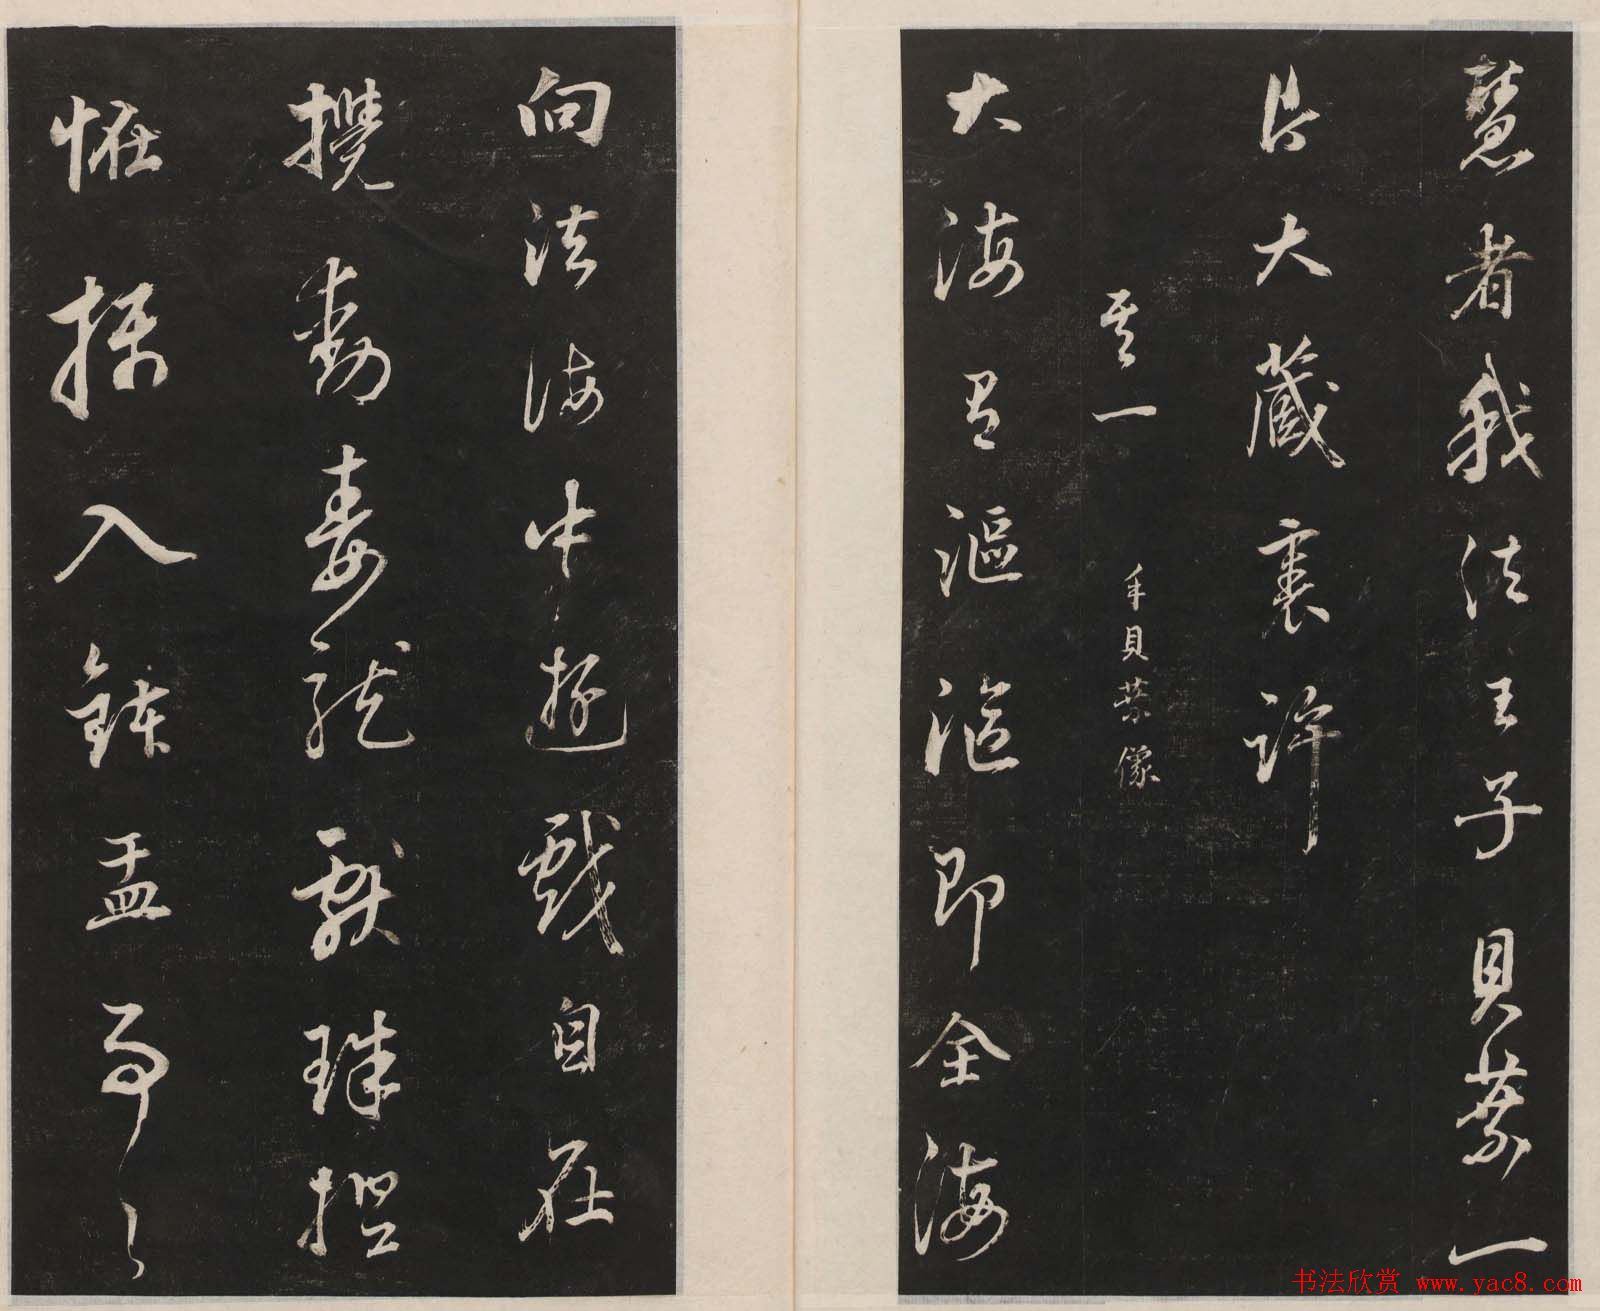 慧者我法王子貝葉一
片大藏裏許
其一 手貝葉像
大海有漚漚即全海
向法海中遊戲自在
攪動毒龍獻珠捏
恠入鉢盂
书法欣赏 www.yac8.com